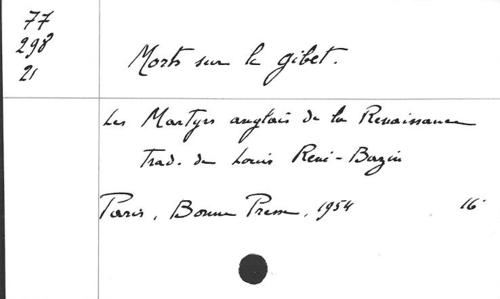 77
298
21
Morts sur le gibet.
Les Martyrs anglais de la Renaissance
Trad. de Louis René-Bazin
Paris, Bonne Presse, 1954 16°